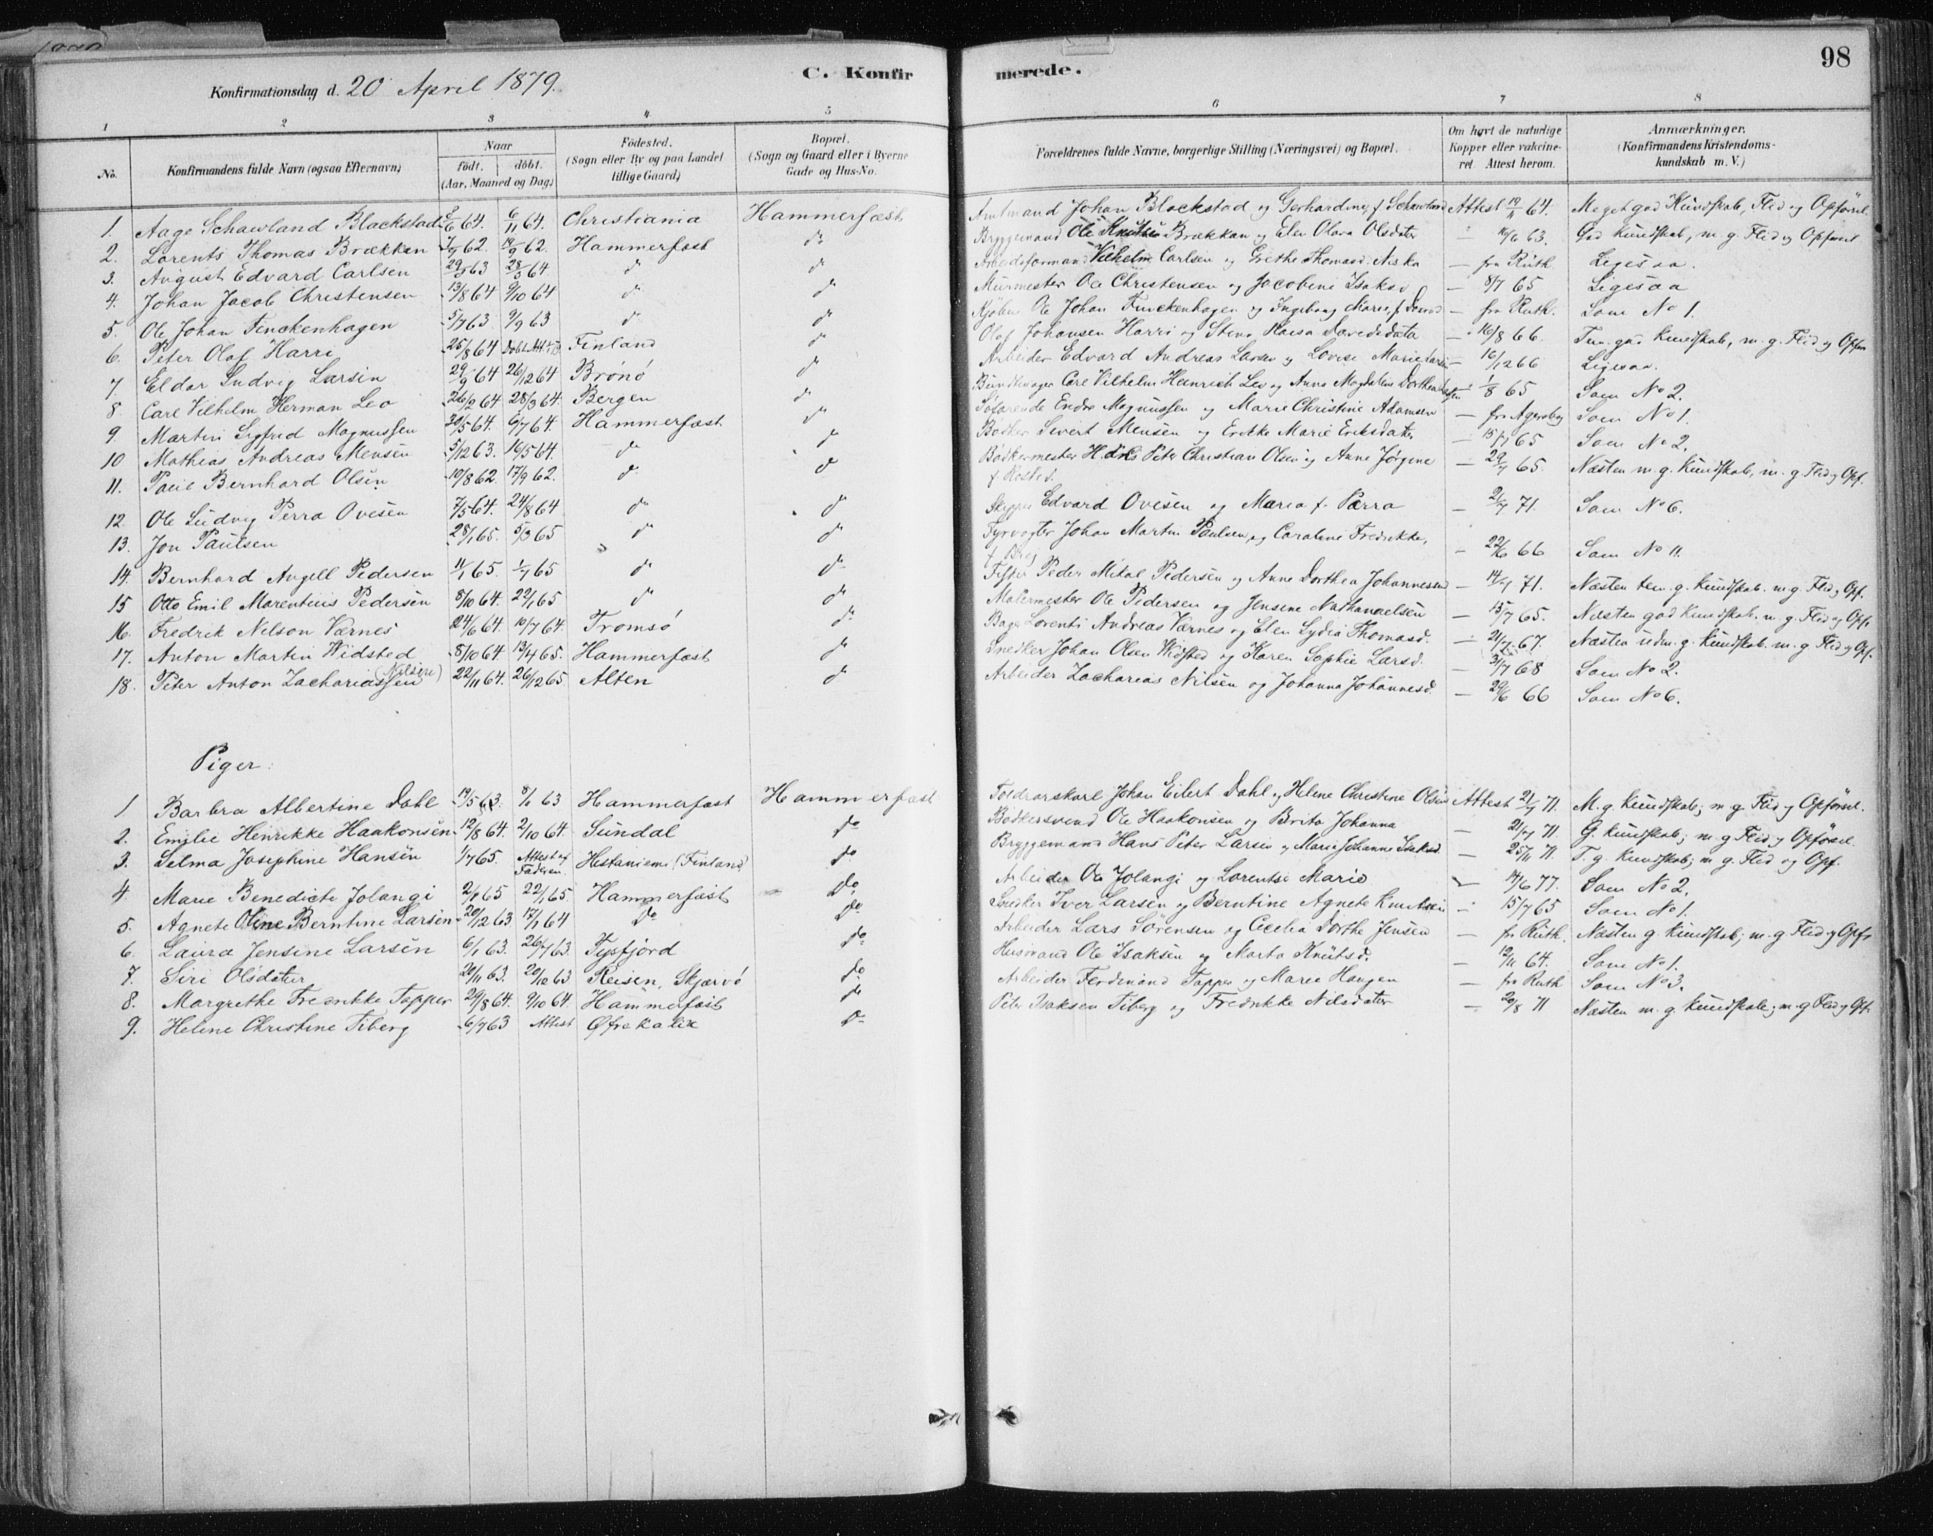 98
Konfirmationsdag d. 20 April 1879.
C. Konfirmerede.
1 2 3 4 5 6 7 8
No.
Konfirmandens fulde Navn (ogsaa Efternavn)
Naar
födt. döbt.
(Aar, Maaned og Dag)
Födested.
(Sogn eller By og paa Landet tillige Gaard)
Bopæl.
(Sogn og Gaard eller i Byerne Gade og Hus-No.
Forældrenes fulde Navne, borgerlige Stilling (Næringsvei) og Bopæl.
Om havt de naturlige Kopper eller vakcineret Attest herom.
Anmærkninger.
(Konfirmandens Kristendomskundskab m. V.)
1. Aage Schawland Blackstad 64. 6/11 64. Christiania Hammerfest Amtmand Johan Blackstad og Gerhardine f. Schawland Attest 64. Meget god Kundskab, Flid og Opförsel
2. Lorents Thomas Brækkan 62. 62. Hammerfest do Bryggemand Ole Knutsen Brækkan og Elen Olava Olsdater – 63. God Kundskab, m. g. Flid og Opförsel
3. August Edvard Carlsen 63 64. do do Arbeidsformand Vilhelm Carlsen og Grethe Thomasd. Niska – fra Ruth. Ligesaa.
4. Johan Jacob Christensen 13/8 64 9/10 64 do do Murmester Ole Christensen og Jacobine Isaksd – 8/7 65 Ligesaa
5. Ole Johan Finckenhagen 5/7 63 9/9 63 do do Kjöbm. Ole Johan Finckenhagen og Ingeborg Marie f. – fra Ruth. Som No 1.
6. Peter Olaf Harri 25/8 64 Finland do Olaf Johansen Harri og Stina Kaisa Davidsdatr – 16/8 66. Tem. god Kundskab, m. g. Flid og Opför
7. Eldar Ludvig Larsen 29/9 64 26/12 64 Brönö do Arbeider Edvard Andreas Larsen og Lovise Marie – 16/12 66 Ligesaa.
8. Carl Vilhelm Herman Leo 26/2 64 28/3 64 Bergen do Carl Vilhelm Heinrich Leo og Anne Magdalene Dorthea – 1/8 65 Som No 2.
9. Martin Sigfred Magnussen 30/5 64. 6/7 64 Hammerfest do Söfarende Endre Magnussen og Marie Christine Adamsen – Som No 1.
10 Mathias Andreas Mensen 5/12 63. 16/5 64 do do Bödker Sivert Mensen og Erikke Marie Eriksdater – 15/7 65 Som No 2.
11. Paul Bernhard Olsen 19/8 62 17/9 62. do do Bödkermester Peter Christian Olsen og Anne Jörgine – 29/7 65. Næsten m. g. Kundskab, m. g. Flid og Opf.
12 Ole Ludvig Perra Ovesen 7/5 64. 24/8 64 do do Skipper Edvard Ovesen og Maria f. Pærra – 2/7 71. Som No 6.
13. Jon Paulsen 28/1 65. 5/3 65 do do Fyrvogter Johan Martin Paulsen, og Caroline Fredrikke, – 22/6 66 Som No 11
14. Bernhard Angell Pedersen 11/1 65. 65 do do Fisker Peder Mikal Pedersen og Anne Dorthea Johannesd – 14/7 71. Næsten tem. g. Kundskab. m. g. Flid og Opf.
15 Otto Emil Marentius Pedersen 8/10 64. 22/1 65 do do Malermester Ole Pedersen og Jensine Nathanaelsen – 15/7 65. Næsten god Kundskab. m. g. Flid og Opf.
16. Fredrik Nilson Værnes 24/6 64 10/7 64. Tromsö do Bager Lorents Andreas Værnes og Elen Lydia Thomasd. – 21/7 67. Næsten udm. g. Kundskab. m. g Flid og Opf.
17. Anton Martin Widsted 8/10 64 13/4 65. Hammerfest do Snedker Johan Olsen Widsted og Karen Sophie Larsd. – 31/7 68 Som No 2.
18. Peter Anton Zachariassen (Nilsen) 22/11 64. 26/12 65 Alten do Arbeider Zacharias Nilsen og Johanna Johannesd. – 29/6 66 Som No 6.
Piger.
1 Barbra Albertine Dahl 19/5 63. 8/6 63 Hammerfest Hammerfest Toldrorskarl Johan Eilert Dahl og Helene Christine Olsen Attest 21/7 71. M. g. Kundskab; m g. Flid og Opförsel.
2. Emilie Henrikke Haakonsen 12/8 64. 2/10 64. Sundal do Bödkersvend Ole Haakonsen og Brita Johanna – 21/7 71. G. Kundskab; m. g Flid og Opförsel
3. Selma Josephine Hansen 65. Attest af Faderen. Hietaniemi (Finland) do Bryggemand Hans Peter Larsen og Marie Johanne Isaksd. – 25/11 71. T. g. Kundskab; m g. Flid og Opf.
4. Marie Benedicte Jolangi 65 22/1 65. Hammerfest do Arbeider Ole Jolangi og Lorentse Marie – 14/6 77. Som No 2.
5. Agnete Oline Berntine Larsen 20/12 63 17/1 64 do do Snedker Iver Larsen og Berntine Agnete Knudsen – 15/7 65 Som No 1.
6. Laura Jensine Larsen 6/1 63. 26/7 63. Tysfjord do Arbeider Lars Sörensen og Cecelia Dorthe Jensen – fr Ruth. Næsten g. Kundskab; m. g Flid og Opf.
7. Siri Olsdater 20/11 63. 63 Reisen, Skjærvö do Husmand Ole Isaksen og Marta Knutsd. – 12/11 64. Som No 1.
8. Margrethe Fredrikke Tapper 29/8 64. 9/10 64. Hammerfest do Arbeider Ferdinand Tapper og Marie Haugen – fra Ruth Som No 3.
9. Helene Christine Tiberg 6/7 63 Attest Øfrekalix do Peter Isaksen Tiberg og Fredrikke Nilsdater – 20/8 71 Næsten m. g. Kundskab; m g Flid og Opf.